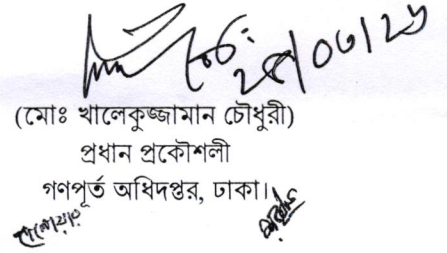 ২৫/০৩/২৬
(মোঃ খালেকুজ্জামান চৌধুরী)
প্রধান প্রকৌশলী
গণপূর্ত অধিদপ্তর, ঢাকা।